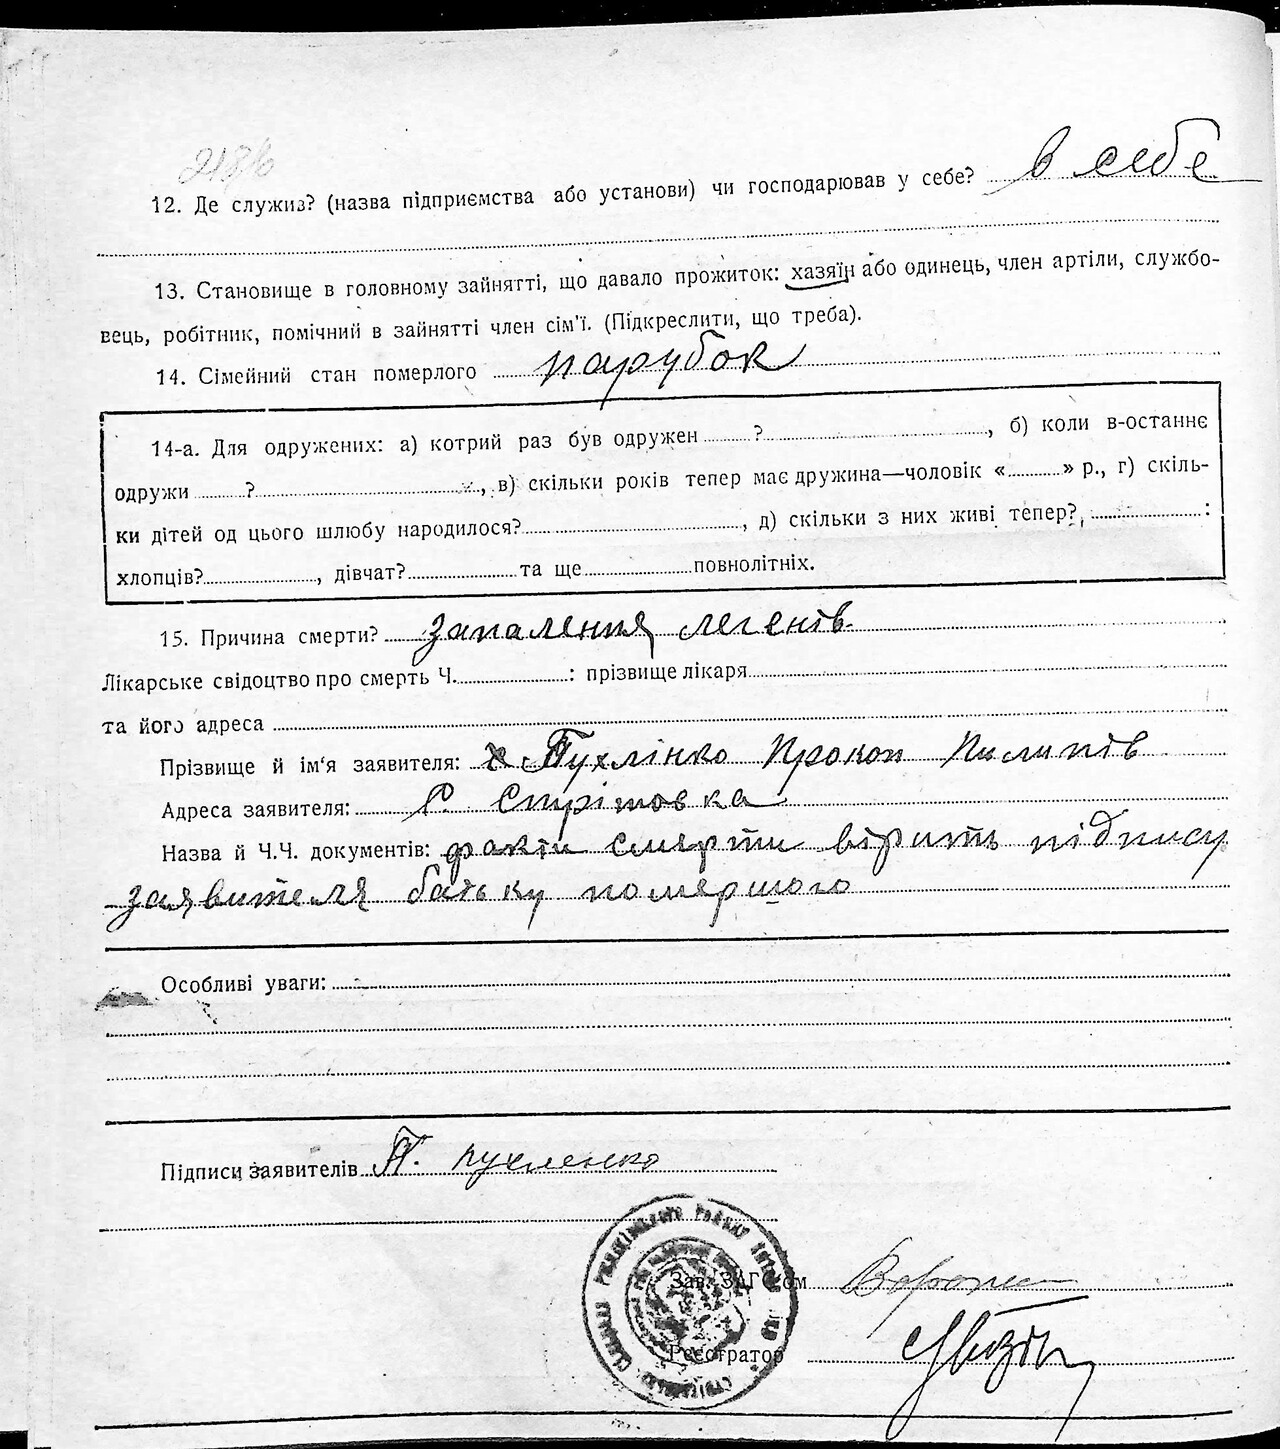 12. Де служив? (назва підприємства або установи) чи господарював у себе? в себе
13. Становище в головному зайнятті, що давало прожиток: хазяїн або одинець, член артіли, службо-
вець, робітник, помічний в зайнятті член сім'ї. (Підкреслити, що треба).
14. Сімейний стан померлого парубок
14-а. Для одружених: а) котрий раз був одружен ? , б) коли в-останнє
одружи ? , в) скільки років тепер має дружина—чоловік « » р., г) скіль-
ки дітей од цього шлюбу народилося? , д) скільки з них живі тепер? :
хлопців? , дівчат? та ще повнолітніх.
15. Причина смерти? запалення легенів
Лікарське свідоцтво про смерть Ч. : прізвище лікаря
та його адреса
Прізвище й ім'я заявителя: Пухлінко Прокоп Пилипів
Адреса заявителя: с. Спрітовка
Назва й Ч.Ч. документів: факти смерти вірить підпису
заявителя батьку помершого
Особливі уваги:
Підписи заявителів П. пухленко
Зав. ЗАГС'ом
Реєстратор